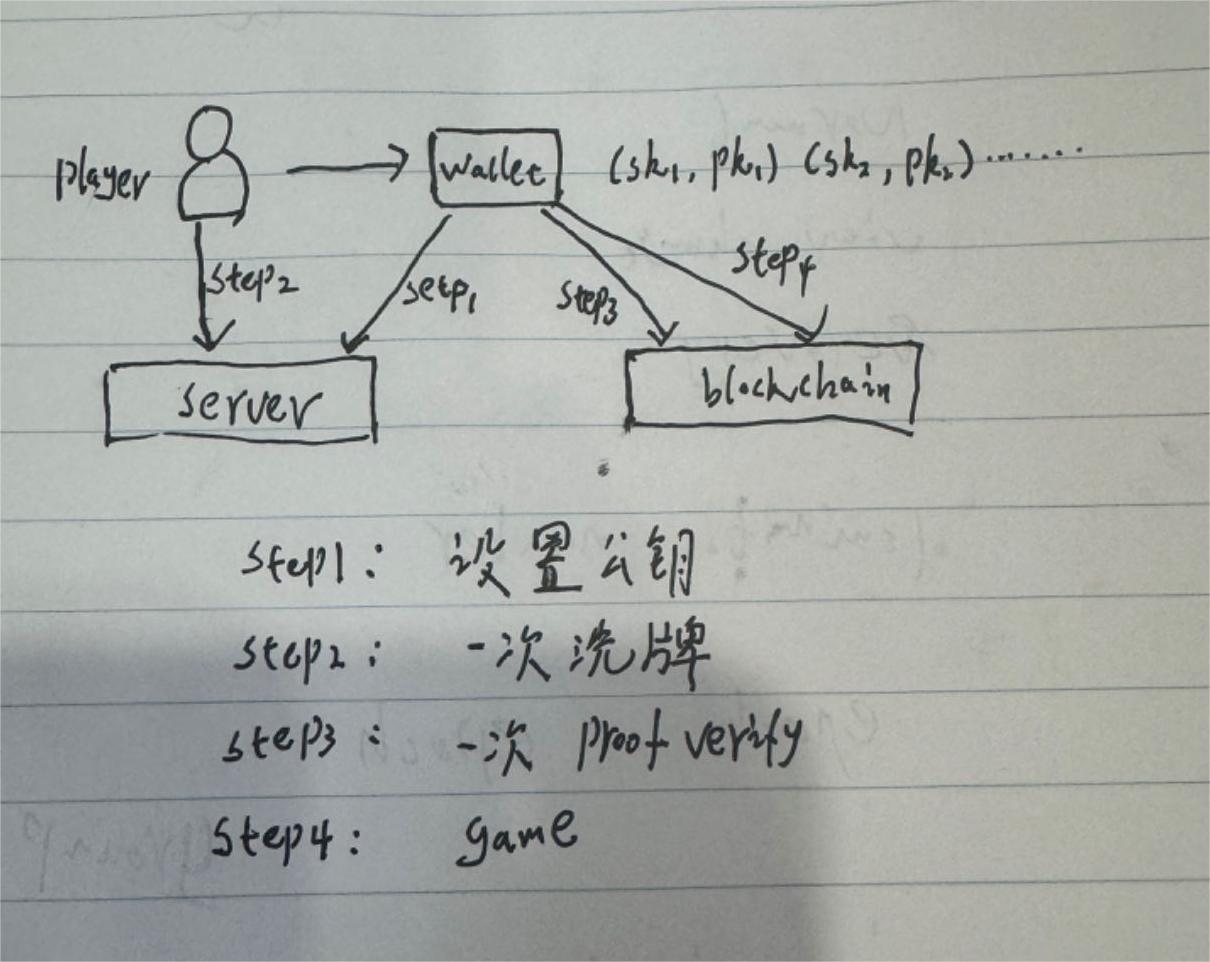 player
wallet
(sk₁, pk₁) (sk₂, pk₂).......
step2
setp1
step3
step4
server
blockchain
step1: 设置公钥
step2: 一次洗牌
step3: 一次 proof verify
step4: game